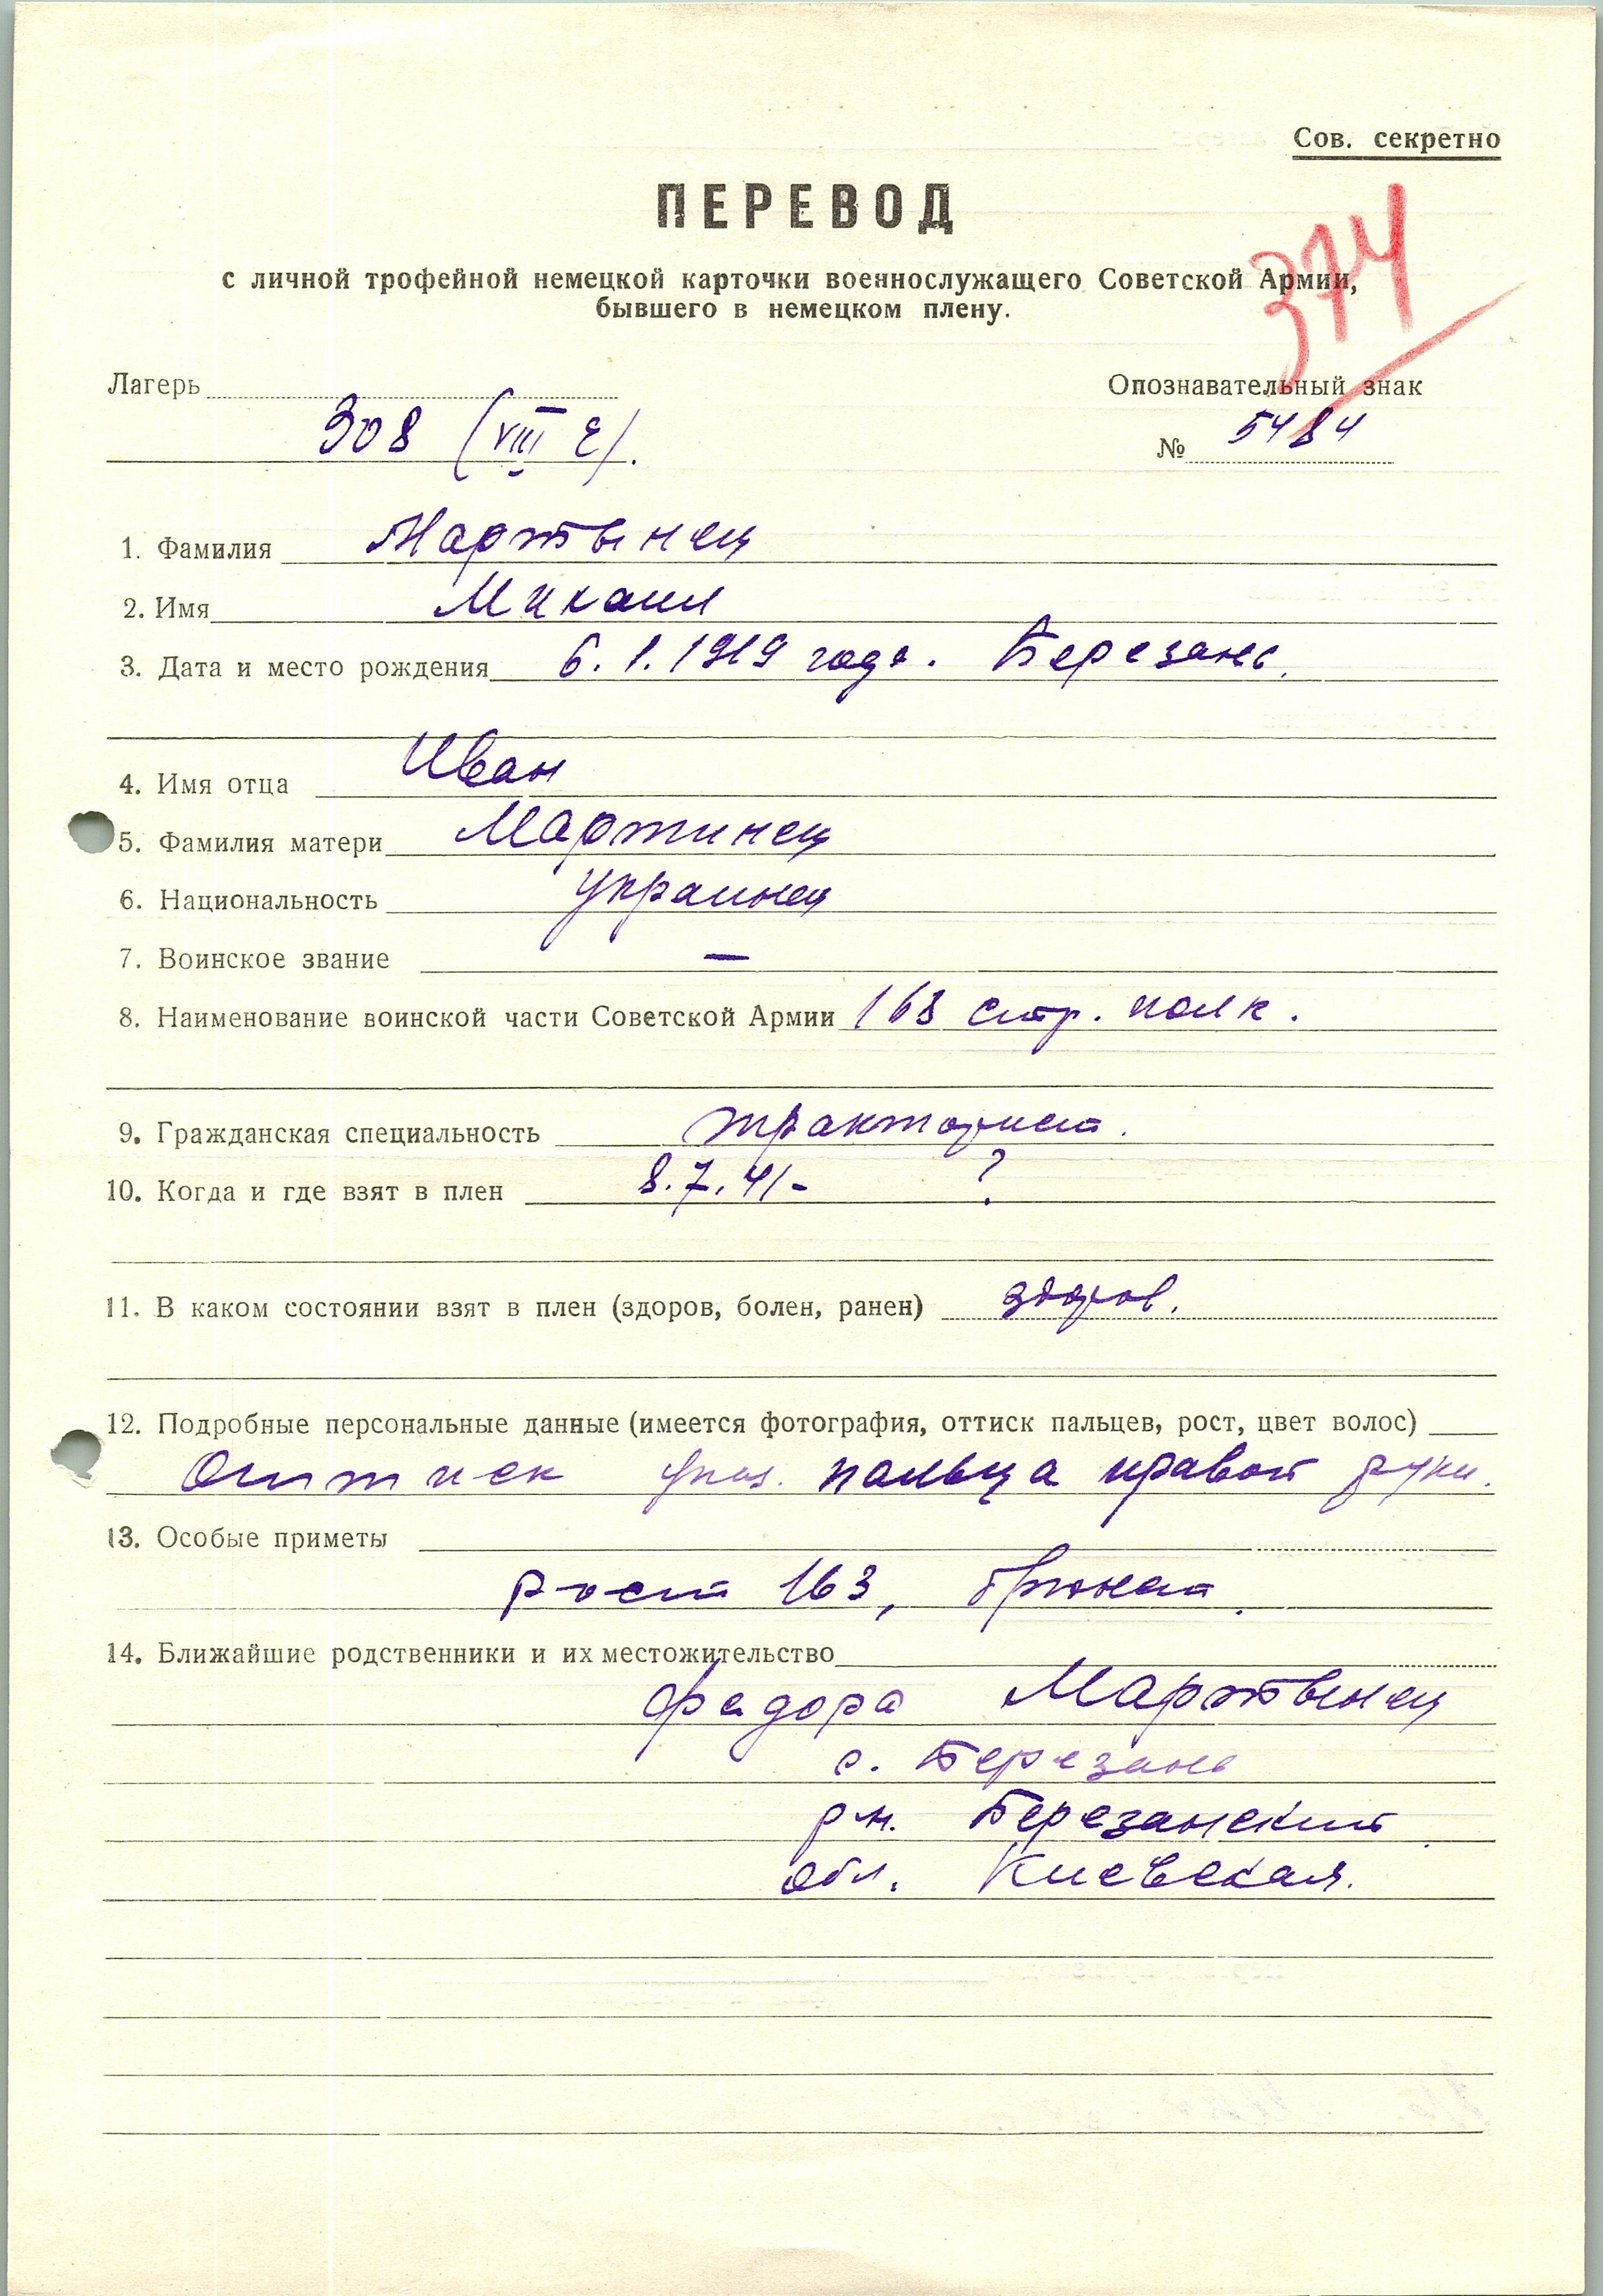 Сов. секретно
ПЕРЕВОД
с личной трофейной немецкой карточки военнослужащего Советской Армии,
бывшего в немецком плену.
374
Лагерь
Опознавательный знак
308 (VIII E).
№ 5484
1. Фамилия Мартынец
2. Имя Михаил
3. Дата и место рождения 6.1.1919 года. Березань.
4. Имя отца Иван
5. Фамилия матери Мартинец
6. Национальность украинец
7. Воинское звание —
8. Наименование воинской части Советской Армии 168 стр. полк.
9. Гражданская специальность тракторист.
10. Когда и где взят в плен 8.7.41- ?
11. В каком состоянии взят в плен (здоров, болен, ранен) здоров.
12. Подробные персональные данные (имеется фотография, оттиск пальцев, рост, цвет волос)
Оттиск указ. пальца правой руки.
13. Особые приметы
рост 163, брюнет.
14. Ближайшие родственники и их местожительство
Федора Мартынец
с. Березань
р-н. Березанский
обл. Киевская.